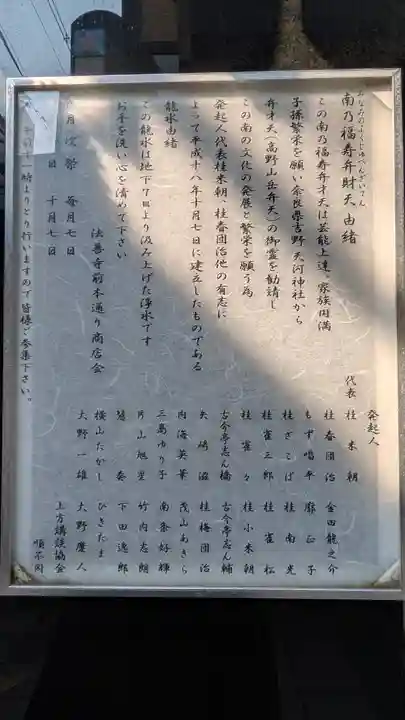 みなみのふくじゅべんざいてん
南乃福寿弁財天 由緒
この南乃福寿弁才天は芸能上達。家族円満
子孫繁栄を願い奈良県吉野天河神社から
弁才天（高野山岳弁天）の御霊を勧請し
この南の文化の発展と繁栄を願う為
発起人代表桂米朝、桂春団治他の有志に
よって平成十八年十月七日に建立したものである
龍水由緒
この龍水は地下７０より汲み上げた浄水です
お手を洗い心を清めて下さい
法善寺前本通り商店会
月次祭 毎月七日
日 十月七日
時よりとり行いますので皆様ご参集下さい。
発起人
代表 桂 米朝
桂 春団治 金田龍之介
もず唱平 麻 正子
桂 ざこば 桂 南光
桂 雀三郎 桂 雀松
桂 雀々 桂 小米朝
古今亭志ん橋 古今亭志ん輔
矢崎 滋 桂 梅団治
内海英華 茂山あきら
三島ゆり子 南条好輝
片山旭星 竹内志朗
奏 下田逸郎
横山たかし ひろたま
大野一雄 大野慶人
上方講談協会
順不同